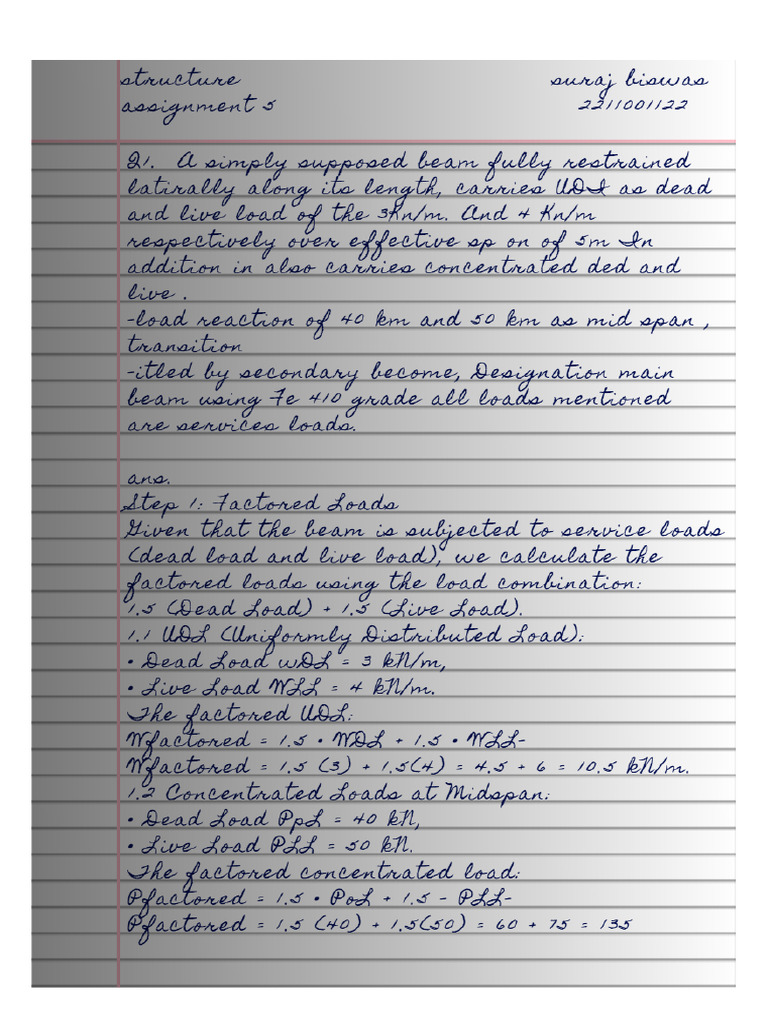 structure
suraj biswas
assignment 5
2211001122
Q1. A simply supposed beam fully restrained
latirally along its length, carries UDI as dead
and live load of the 3Kn/m. And 4 Kn/m
respectively over effective sp on of 5m In
addition in also carries concentrated ded and
live .
-load reaction of 40 km and 50 km as mid span ,
transition
-itled by secondary become, Designation main
beam using Fe 410 grade all loads mentioned
are services loads.
ans.
Step 1: Factored Loads
Given that the beam is subjected to service loads
(dead load and live load), we calculate the
factored loads using the load combination:
1.5 (Dead Load) + 1.5 (Live Load).
1.1 UDL (Uniformly Distributed Load):
• Dead Load wDL = 3 kN/m,
• Live Load WLL = 4 kN/m.
The factored UDL:
Wfactored = 1.5 • WDL + 1.5 • WLL-
Wfactored = 1.5 (3) + 1.5(4) = 4.5 + 6 = 10.5 kN/m.
1.2 Concentrated Loads at Midspan:
• Dead Load PpL = 40 kN,
• Live Load PLL = 50 kN.
The factored concentrated load:
Pfactored = 1.5 • PoL + 1.5 - PLL-
Pfactored = 1.5 (40) + 1.5(50) = 60 + 75 = 135